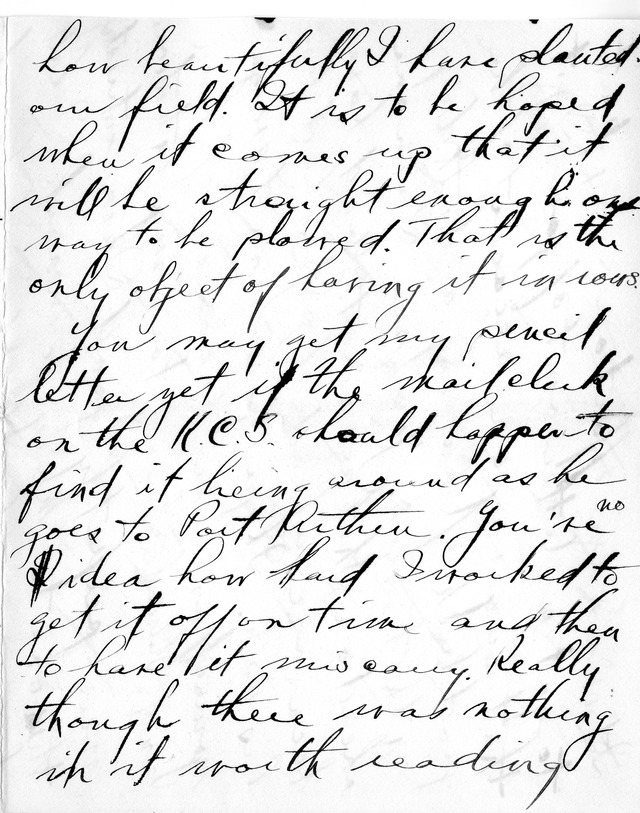 how beautifully I have planted
our field. It is to be hoped
when it comes up that it
will be straight enough one
way to be plowed. That is the
only object of having it in rows.
You may get my pencil
letter yet if the mail clerk
on the K.C.S. should happen to
find it lieing around as he
goes to Port Arthur. You've no
idea how hard I worked to
get it off on time and then
to have it miscarry. Really
though there was nothing
in it worth reading